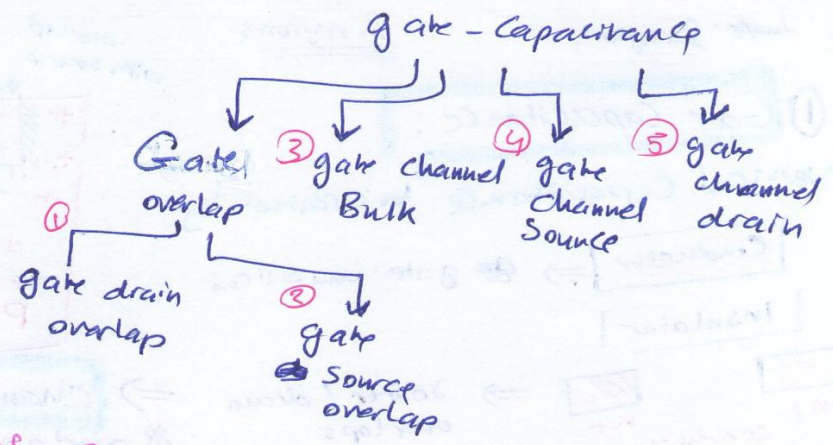 gate - Capacitance
Gate overlap
③ gate channel Bulk
④ gate channel Source
⑤ gate channel drain
① gate drain overlap
② gate Source overlap